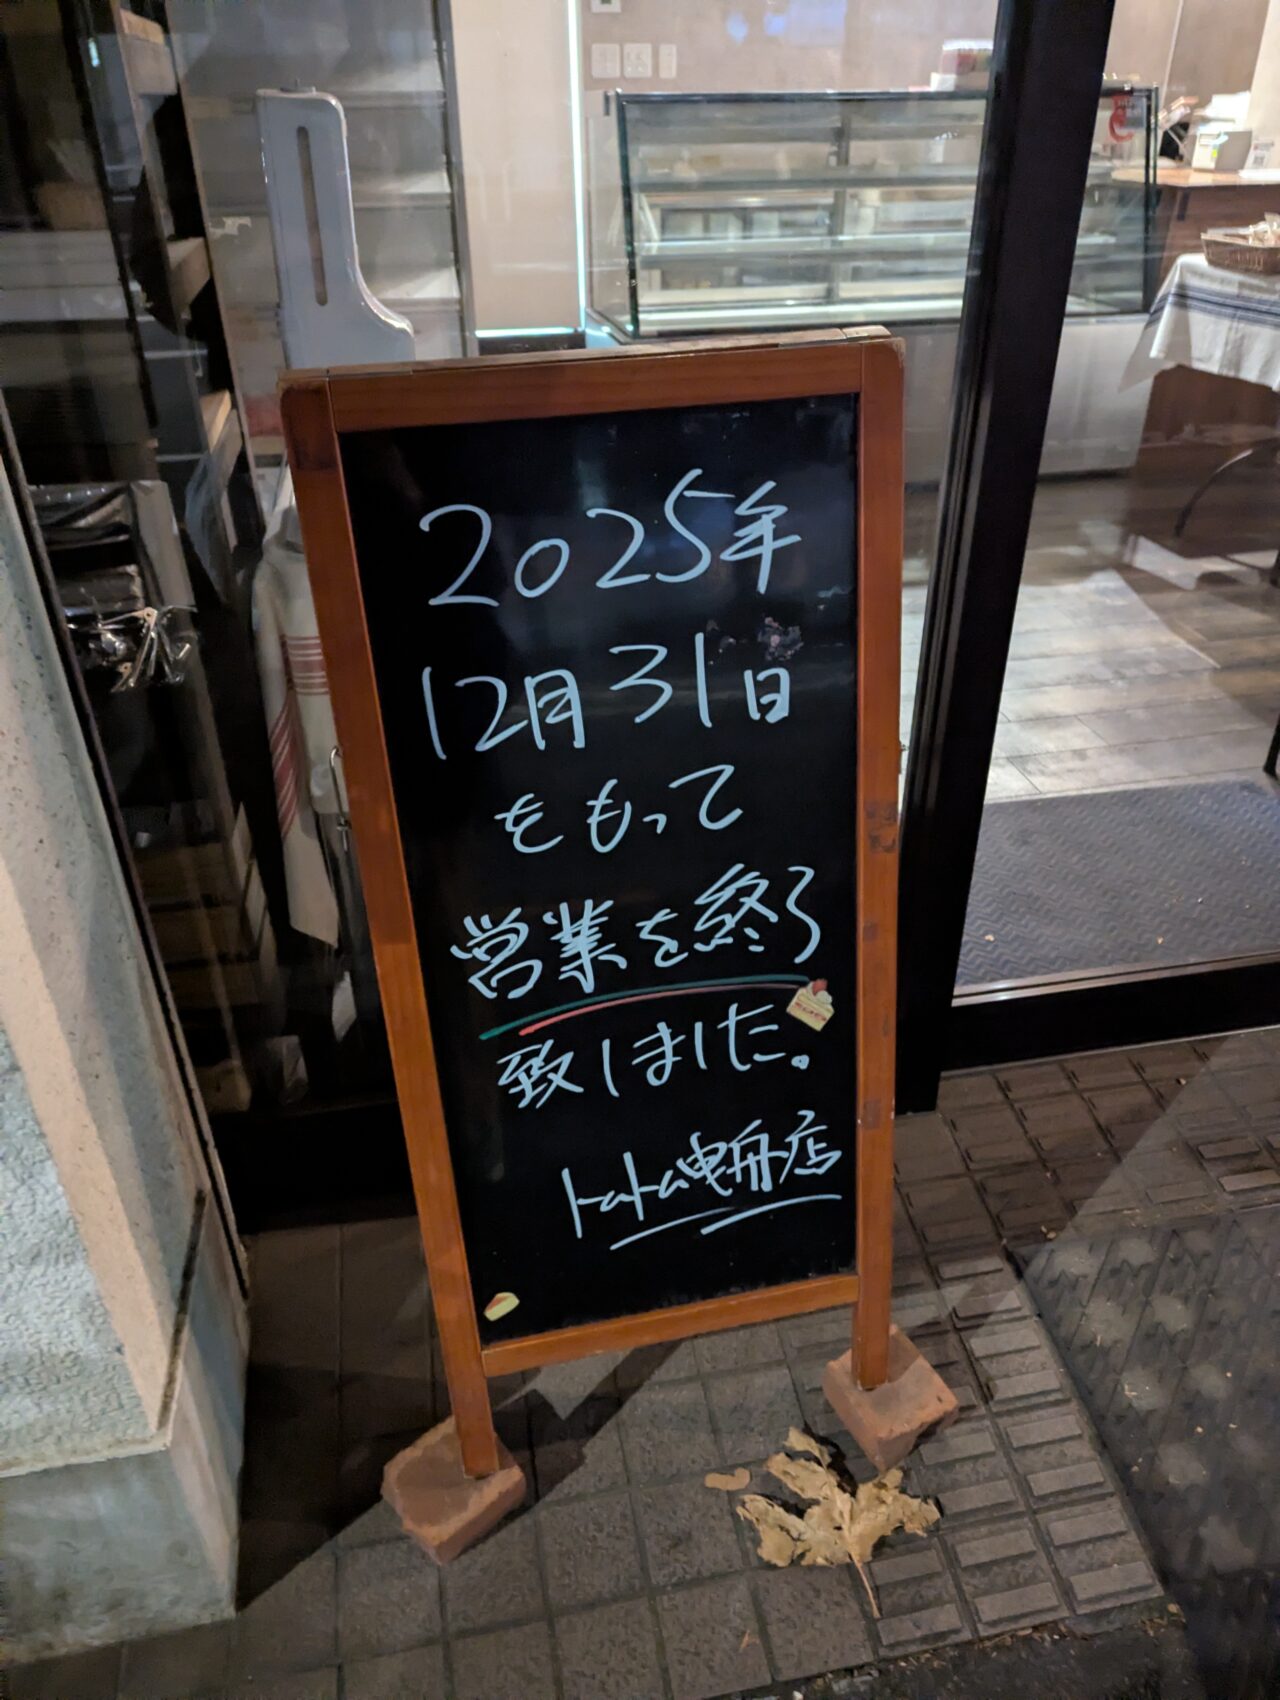 2025年
12月31日
をもって
営業を終了
致しました。
トムトム曳舟店